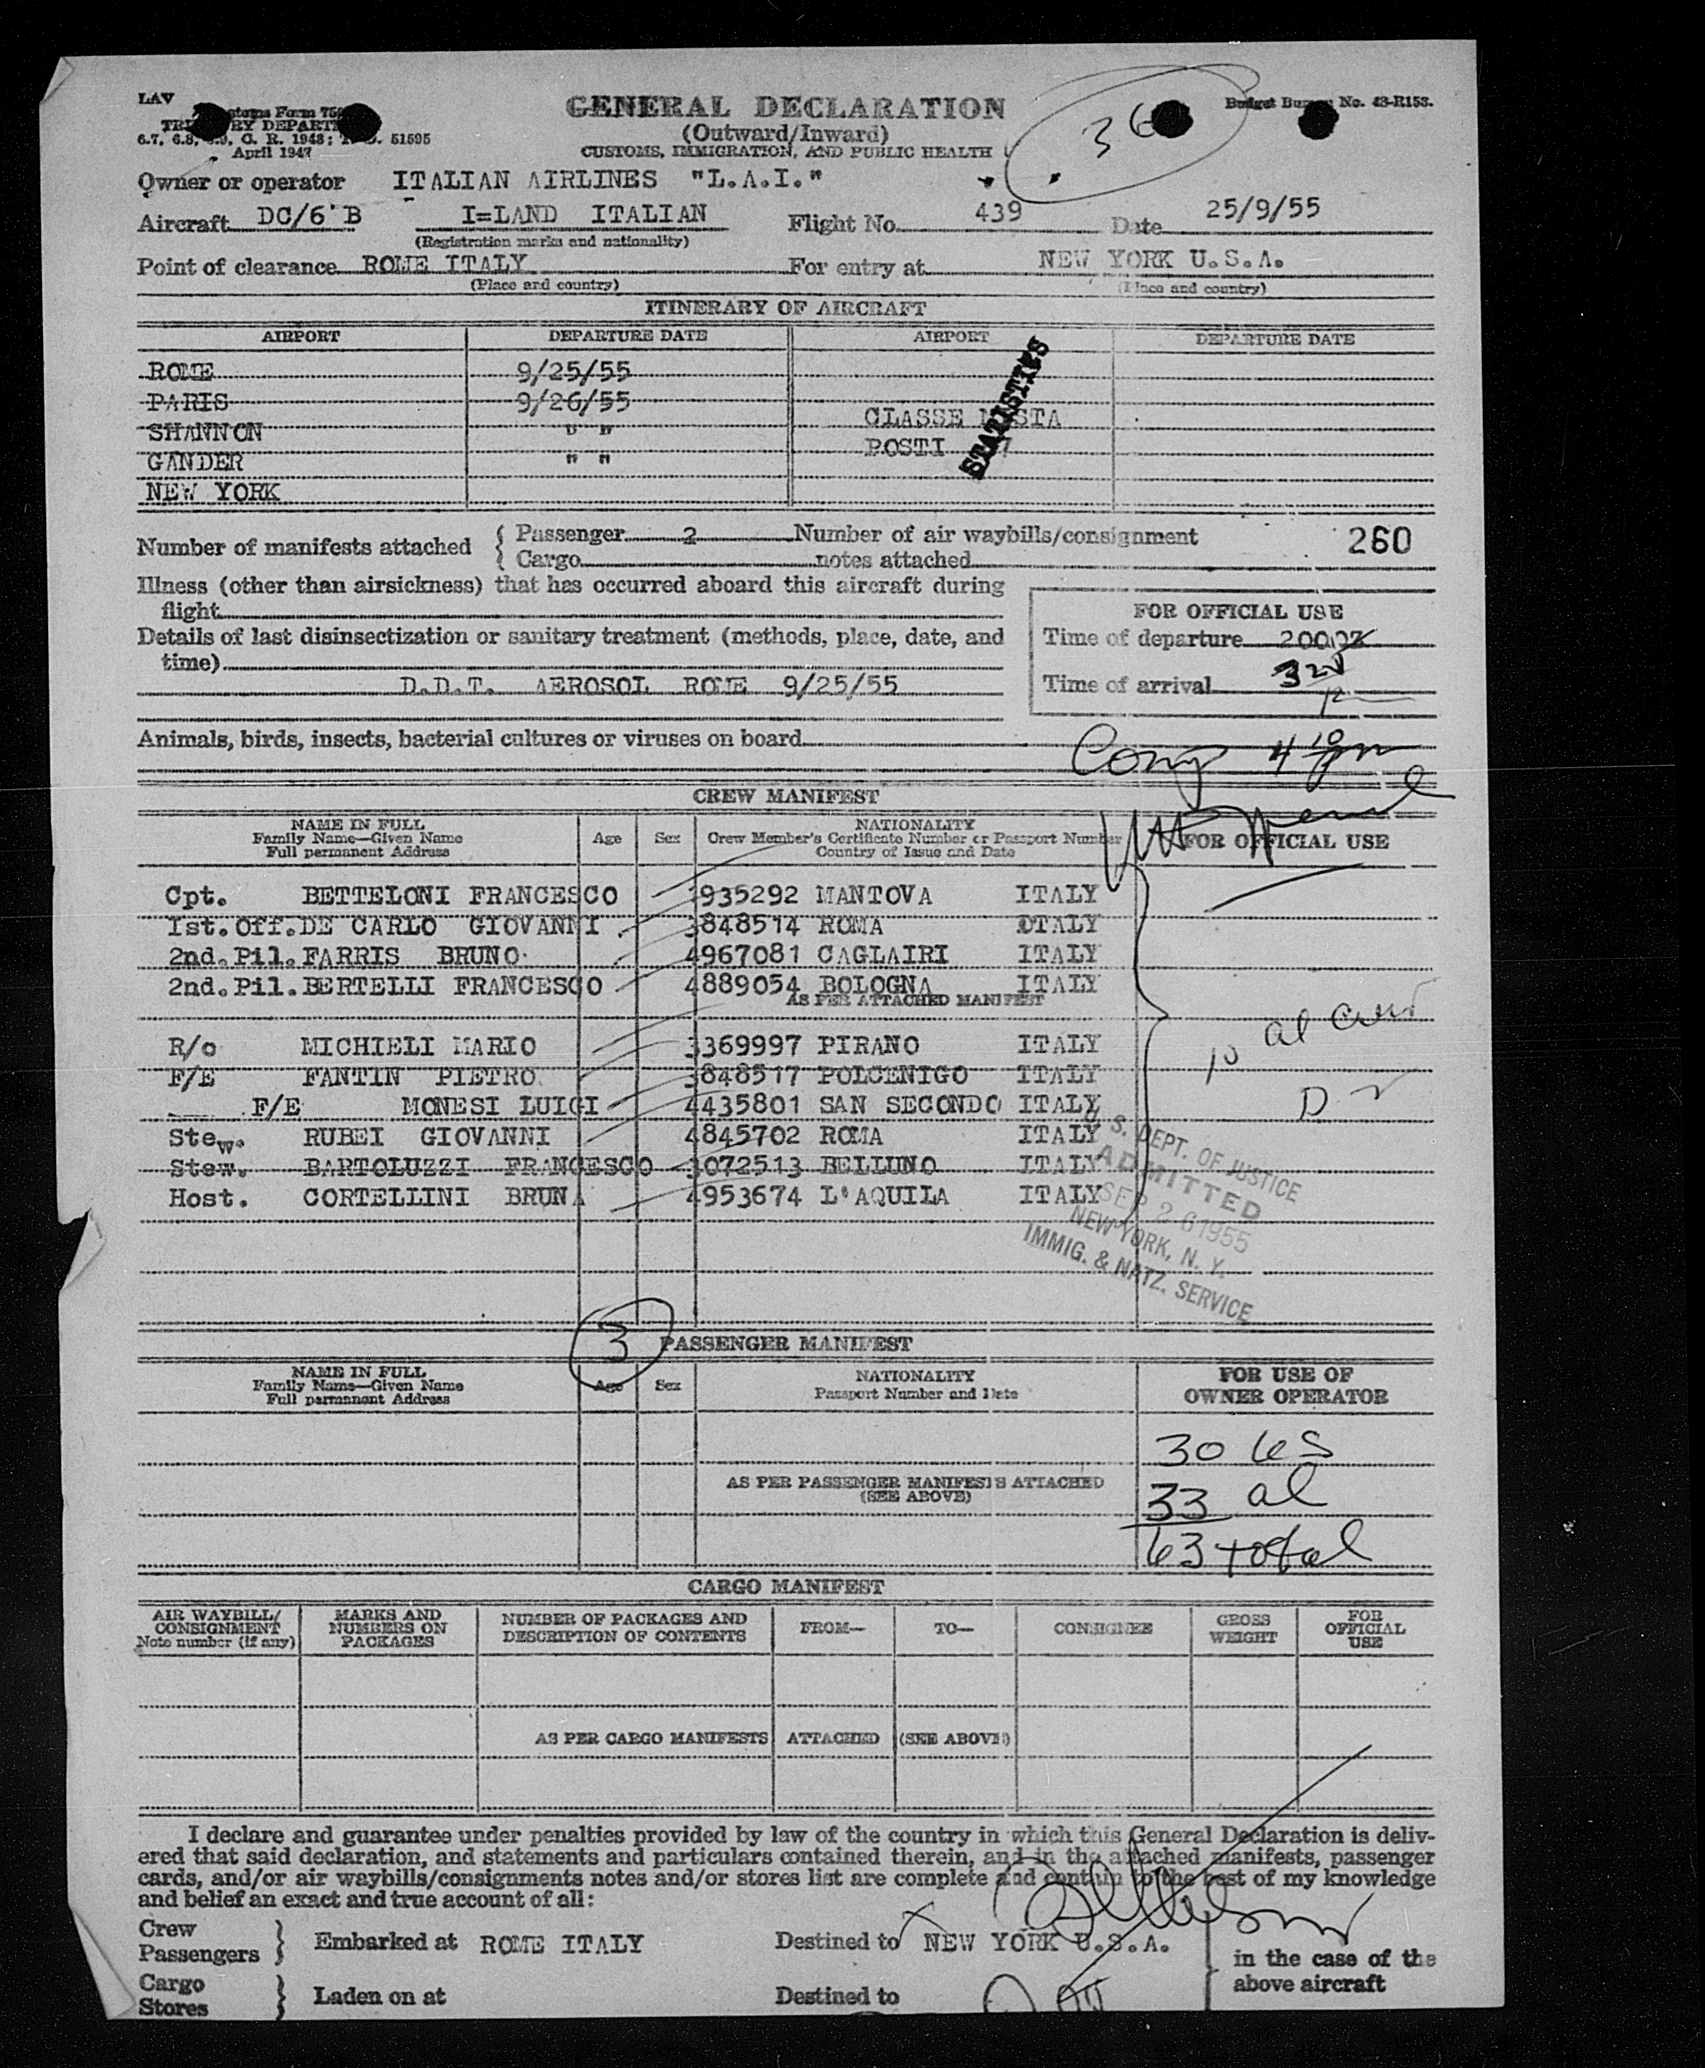 LAV
GENERAL DECLARATION
Budget Bureau No. 43-R153.
Customs Form
(Outward/Inward)
36
TREASURY DEPARTMENT
6.7, 6.8, 6.9, C. R. 1943; T. D. 51595
April 1947
CUSTOMS, IMMIGRATION, AND PUBLIC HEALTH
Owner or operator ITALIAN AIRLINES "L.A.I."
Aircraft DC/6'B I=LAND ITALIAN Flight No. 439 Date 25/9/55
(Registration marks and nationality)
Point of clearance ROME ITALY For entry at NEW YORK U.S.A.
(Place and country) (Place and country)
ITINERARY OF AIRCRAFT
AIRPORT DEPARTURE DATE AIRPORT DEPARTURE DATE
ROME 9/25/55
PARIS 9/26/55
SHANNON " " CLASSE MISTA
GANDER " " POSTI
NEW YORK
STATISTICS
Number of manifests attached { Passenger 2 Number of air waybills/consignment 260
Cargo notes attached
Illness (other than airsickness) that has occurred aboard this aircraft during
flight
FOR OFFICIAL USE
Details of last disinsectization or sanitary treatment (methods, place, date, and
time)
Time of departure 2000Z
D.D.T. AEROSOL ROME 9/25/55
Time of arrival 320
Animals, birds, insects, bacterial cultures or viruses on board
Cong 4 10 pm
CREW MANIFEST
NAME IN FULL
Family Name—Given Name
Full permanent Address
Age Sex
NATIONALITY
Crew Member's Certificate Number or Passport Number
Country of Issue and Date
FOR OFFICIAL USE
Cpt. BETTELONI FRANCESCO 3935292 MANTOVA ITALY
Ist.Off.DE CARLO GIOVANNI 3848514 ROMA ITALY
2nd.Pil.FARRIS BRUNO 4967081 CAGLAIRI ITALY
2nd.Pil.BERTELLI FRANCESCO 4889054 BOLOGNA ITALY
AS PER ATTACHED MANIFEST
R/o MICHIELI MARIO 3369997 PIRANO ITALY
F/E FANTIN PIETRO 3848517 POLCENIGO ITALY
F/E MONESI LUIGI 4435801 SAN SECONDO ITALY
Stew. RUBEI GIOVANNI 4845702 ROMA ITALY
Stew. BARTOLUZZI FRANCESCO 3072513 BELLUNO ITALY
Host. CORTELLINI BRUNA 4953674 L'AQUILA ITALY
10 al crew
D
U. S. DEPT. OF JUSTICE
ADMITTED
SEP 26 1955
NEW YORK, N. Y.
IMMIG. & NATZ. SERVICE
3
PASSENGER MANIFEST
NAME IN FULL
Family Name—Given Name
Full permanent Address
Age Sex
NATIONALITY
Passport Number and Date
FOR USE OF
OWNER OPERATOR
30 US
AS PER PASSENGER MANIFESTS ATTACHED
(SEE ABOVE)
33 al
63 total
CARGO MANIFEST
AIR WAYBILL/
CONSIGNMENT
Note number (if any)
MARKS AND
NUMBERS ON
PACKAGES
NUMBER OF PACKAGES AND
DESCRIPTION OF CONTENTS
FROM— TO— CONSIGNEE
GROSS
WEIGHT
FOR
OFFICIAL
USE
AS PER CARGO MANIFESTS ATTACHED (SEE ABOVE)
I declare and guarantee under penalties provided by law of the country in which this General Declaration is deliv-
ered that said declaration, and statements and particulars contained therein, and in the attached manifests, passenger
cards, and/or air waybills/consignments notes and/or stores list are complete and contain to the best of my knowledge
and belief an exact and true account of all:
Crew
Passengers } Embarked at ROME ITALY Destined to NEW YORK U.S.A.
in the case of the
above aircraft
Cargo
Stores } Laden on at Destined to